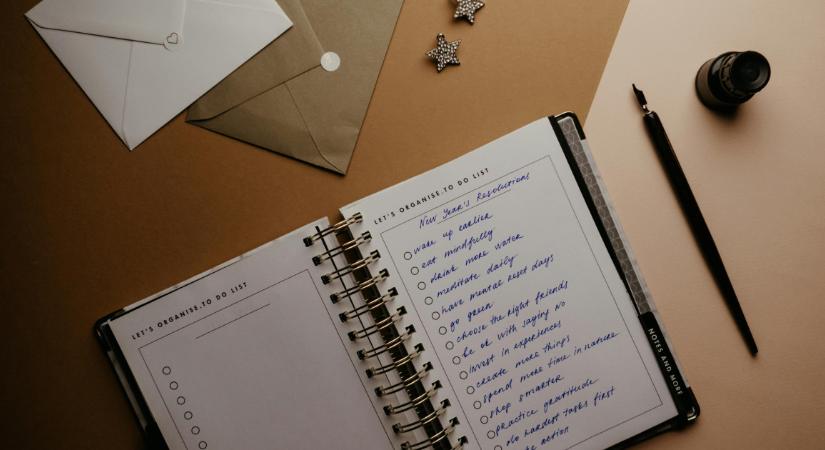 LET'S ORGANISE.TO DO LIST
LET'S ORGANISE.TO DO LIST
New Year's Resolutions
wake up earlier
eat mindfully
drink more water
meditate daily
have mental reset days
go green
choose the right friends
be ok with saying no
invest in experiences
create more things
spend more time in nature
shop smarter
practice gratitude
do hardest tasks first
action
NOTES AND MORE